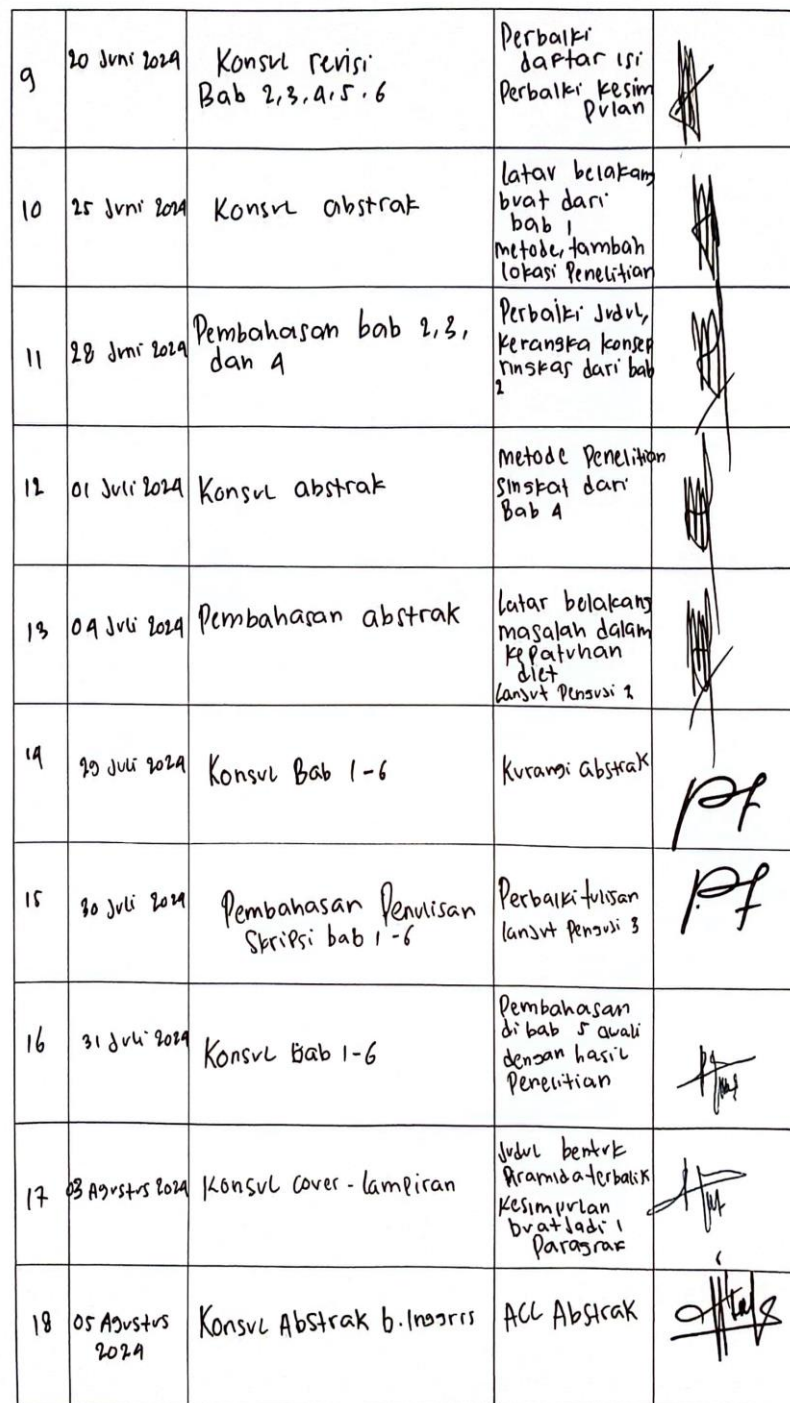 9
20 Juni 2024
Konsul revisi
Bab 2,3,4,5.6
Perbaiki
daftar isi
Perbaiki kesim
pulan
10
25 Juni 2024
Konsul abstrak
latar belakang
buat dari
bab 1
metode, tambah
lokasi Penelitian
11
28 Juni 2024
Pembahasan bab 2,3,
dan 4
Perbaiki Judul,
kerangka konsep
ringkas dari bab
2
12
01 Juli 2024
Konsul abstrak
metode Penelitian
singkat dari
Bab 4
13
04 Juli 2024
Pembahasan abstrak
Latar belakang
masalah dalam
kepatuhan
diet
Lanjut Penguji 2
14
29 Juli 2024
Konsul Bab 1-6
Kurangi abstrak
15
30 Juli 2024
Pembahasan Penulisan
Skripsi bab 1-6
Perbaiki tulisan
lanjut Penguji 3
16
31 Juli 2024
Konsul Bab 1-6
Pembahasan
di bab 5 awali
dengan hasil
Penelitian
17
03 Agustus 2024
Konsul cover - lampiran
Judul bentuk
Piramida terbalik
Kesimpulan
buat Jadi 1
Paragraf
18
05 Agustus
2024
Konsul Abstrak b. Inggris
ACC Abstrak